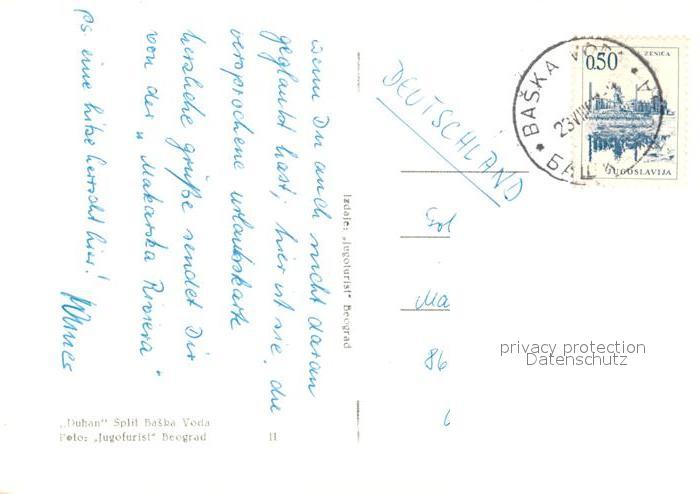 wenn Du auch nicht daran
geglaubt hast, hier ist sie, die
versprochene Urlaubskarte
herzliche Grüße sendet Dir
von der „Makarska Riviera"
PS eine Hitze herrscht hier!
DEUTSCHLAND
Ma
86
6
Izdaje: „Jugoturist" Beograd
„Duhan" Split Baška Voda
Foto: „Jugoturist" Beograd
11
ZENICA
0.50
JUGOSLAVIJA
BAŠKA VODA
23 VII
privacy protection
Datenschutz